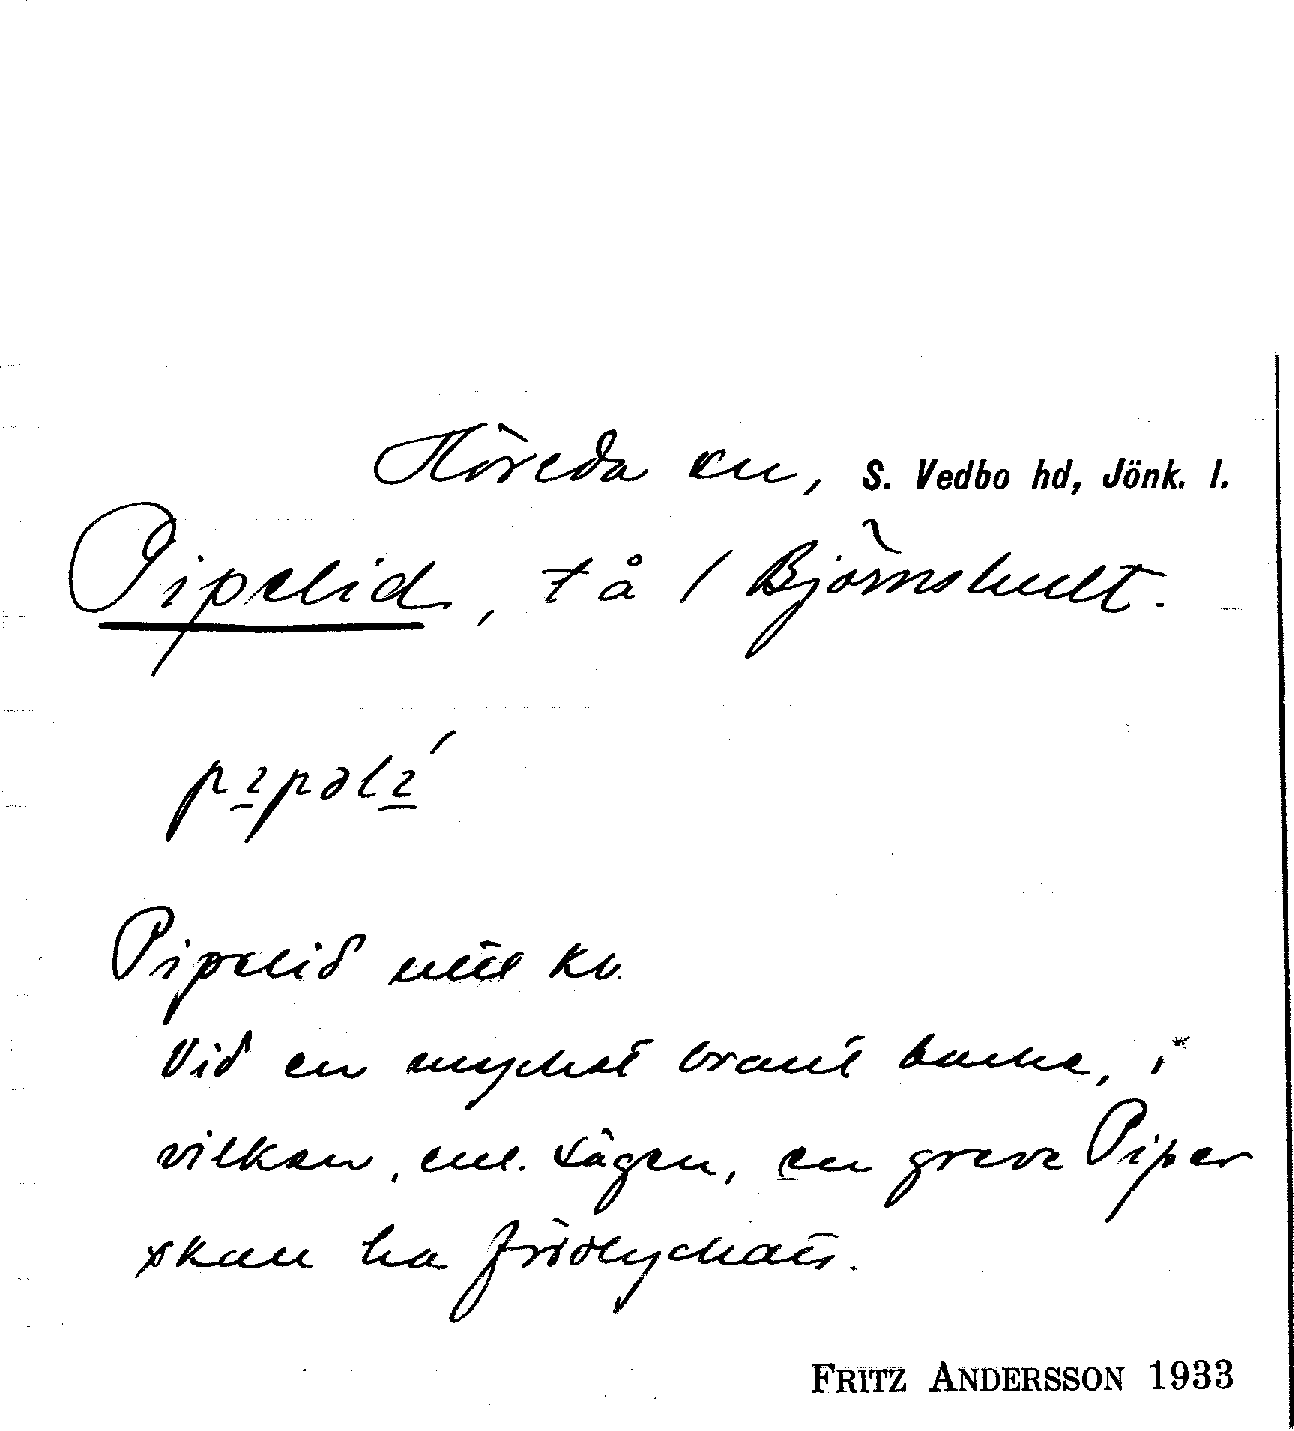 Höreda sn, S. Vedbo hd, Jönk. l.
Pipelid, tå / Björnshult.
pɪpəlɪ́
Pipelid utt kv
Vid en mycket brant backe, i
vilken, enl. sägen, en greve Piper
skall ha förolyckats.
FRITZ ANDERSSON 1933